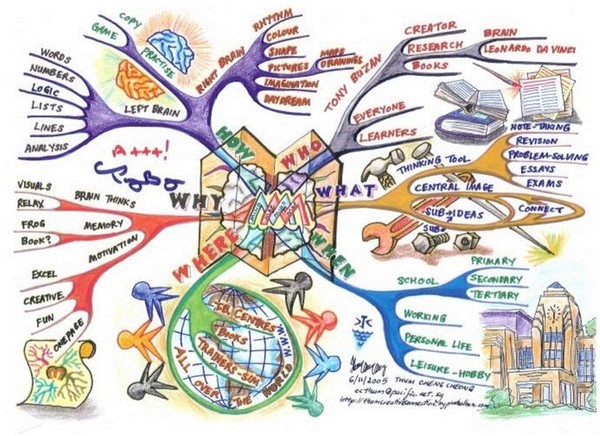 HOW
COPY
GAME
PRACTISE
LEFT BRAIN
WORDS
NUMBERS
LOGIC
LISTS
LINES
ANALYSIS
RIGHT BRAIN
RHYTHM
COLOUR
SHAPE
PICTURES
MAPS
DRAWINGS
IMAGINATION
DAYDREAM
WHO
TONY BUZAN
CREATOR
RESEARCH
BOOKS
BRAIN
LEONARDO DA VINCI
EVERYONE
LEARNERS
WHAT
THINKING TOOL
NOTE-TAKING
REVISION
PROBLEM-SOLVING
ESSAYS
EXAMS
CENTRAL IMAGE
SUB-IDEAS
SUB
CONNECT
WHEN
SCHOOL
PRIMARY
SECONDARY
TERTIARY
WORKING
PERSONAL LIFE
LEISURE-HOBBY
WHERE
WWW
BOOKS
ALL OVER
THE WORLD
WHY
A+++!
BRAIN THINKS
VISUALS
RELAX
MEMORY
FROG
BOOK?
MOTIVATION
EXCEL
CREATIVE
FUN
ONE PAGE
6/11/2005 THUM CHENG CHEONG
ccthum@pacific.net.sg